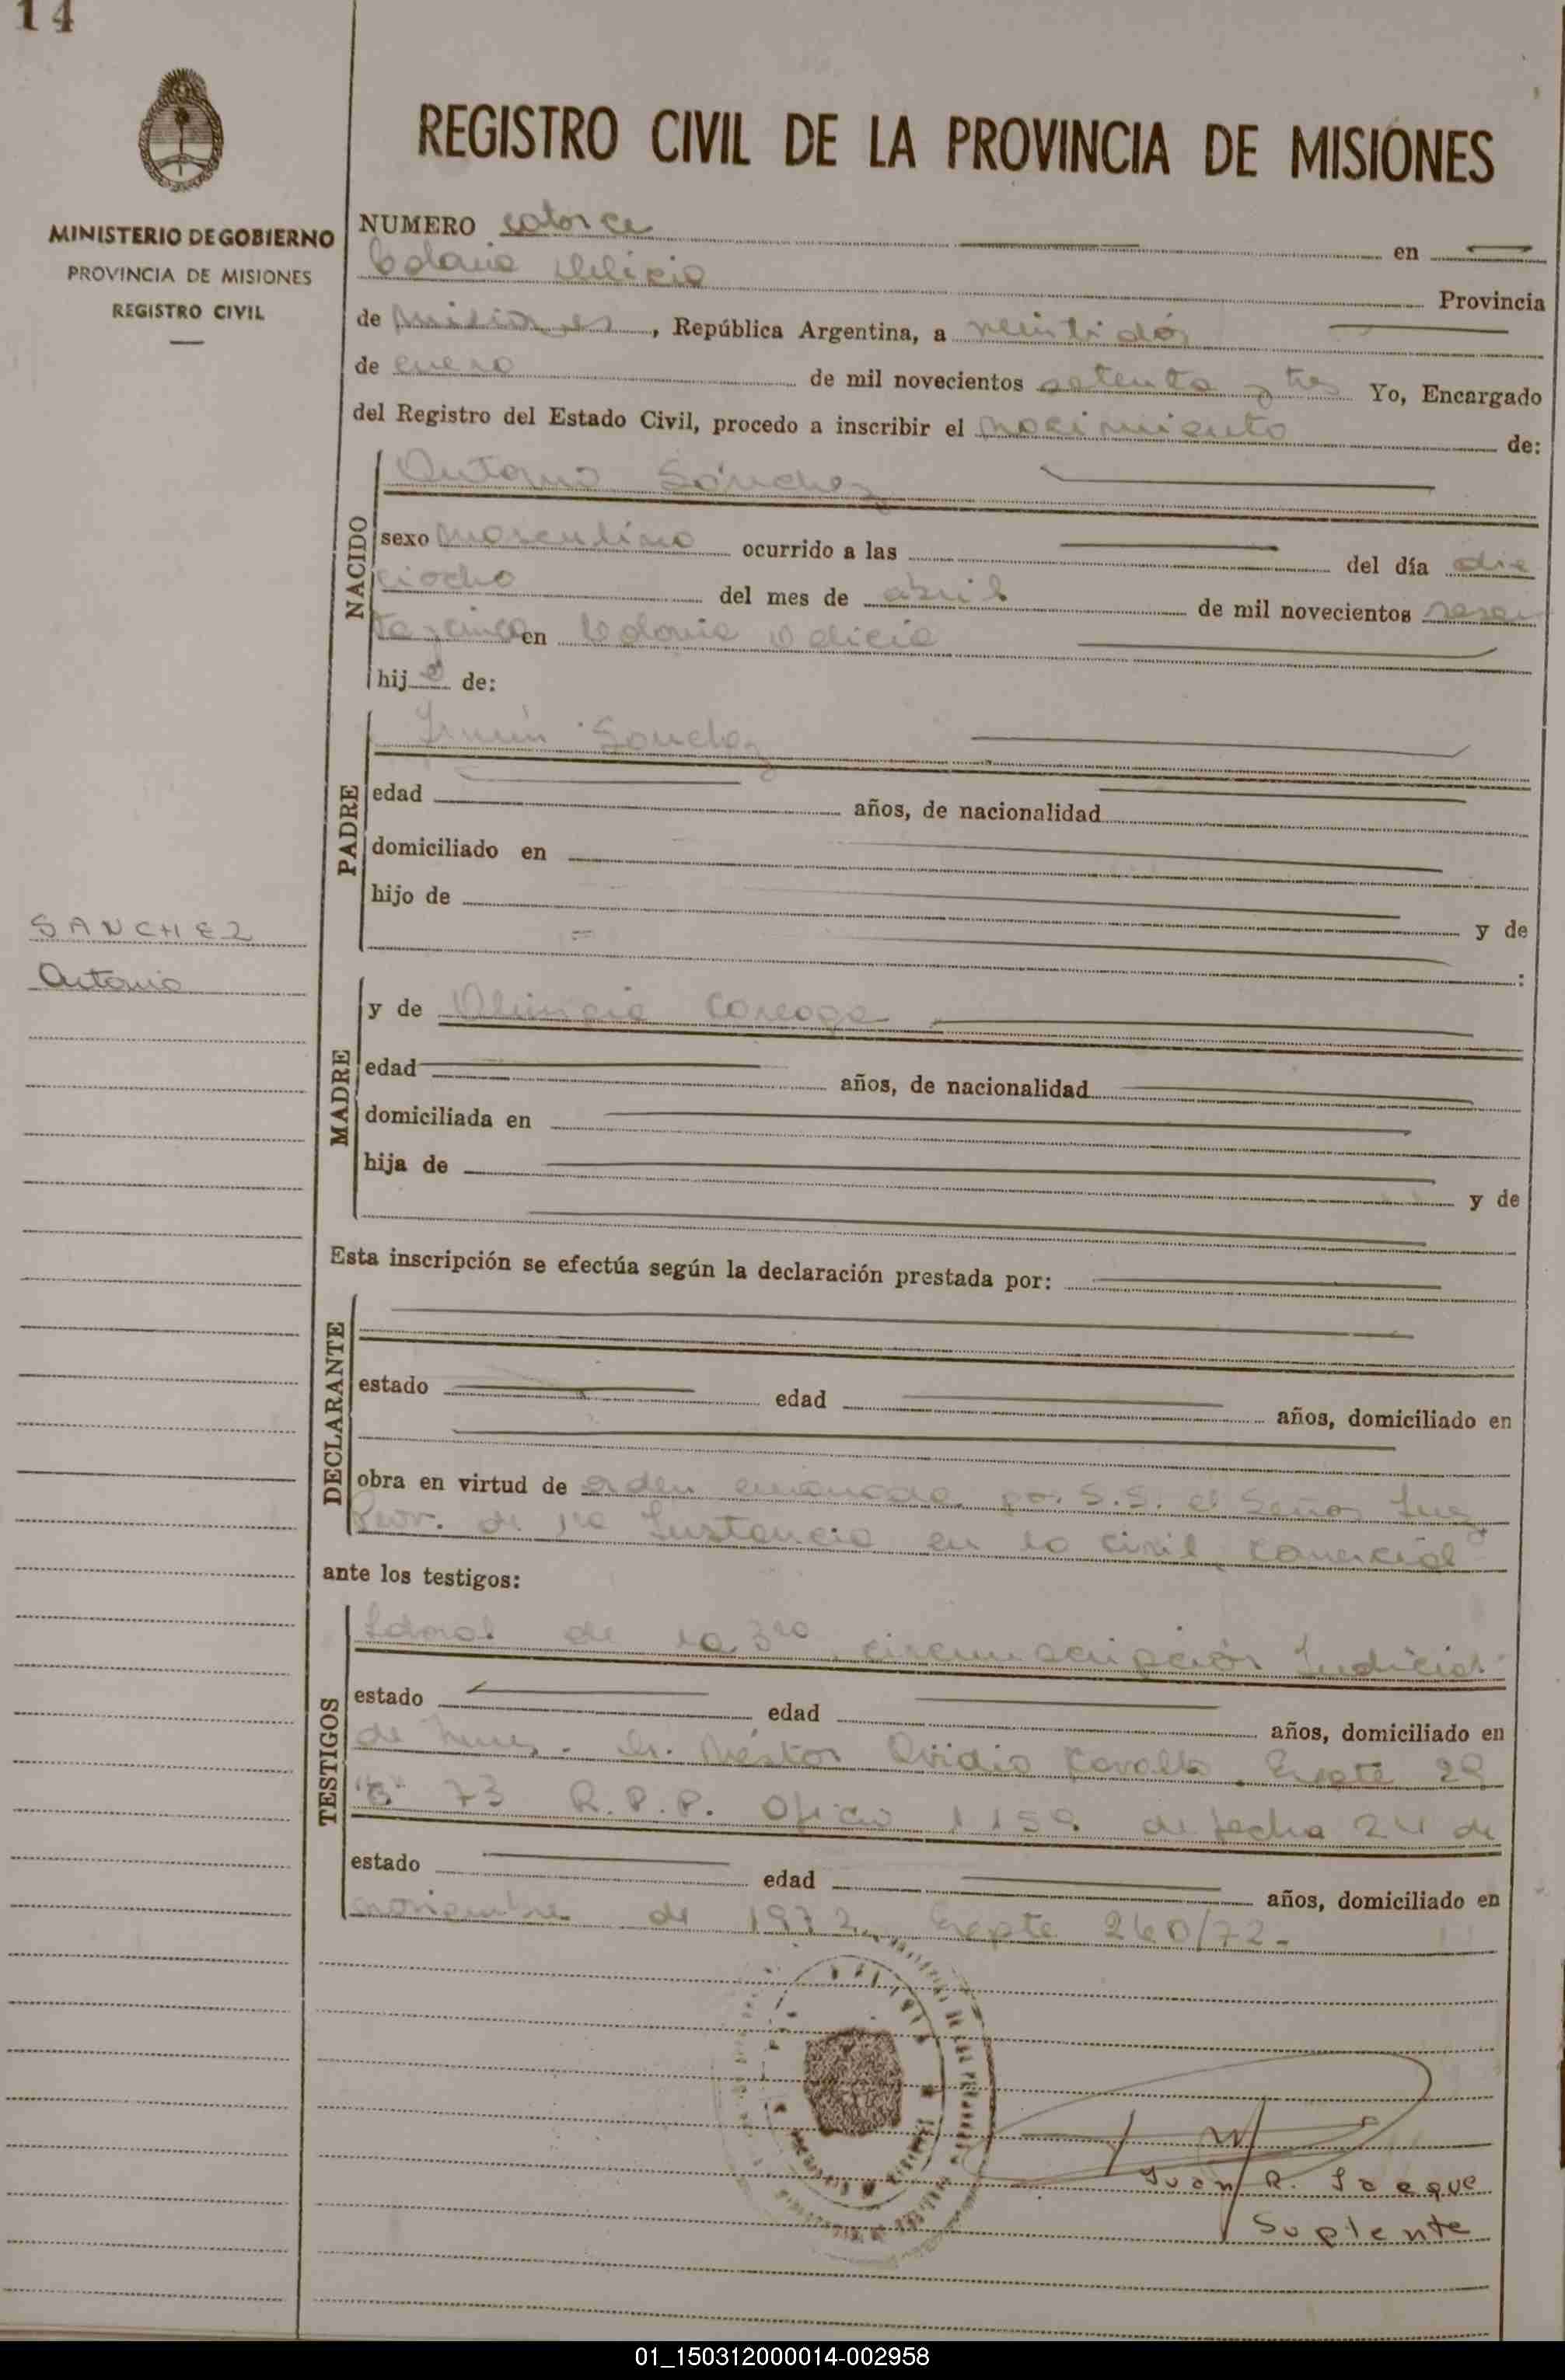 14
REGISTRO CIVIL DE LA PROVINCIA DE MISIONES
MINISTERIO DE GOBIERNO
PROVINCIA DE MISIONES
REGISTRO CIVIL
NUMERO catorce en
Colonia Delicia Provincia
de Misiones, República Argentina, a veintidós
de enero de mil novecientos setenta y tres Yo, Encargado
del Registro del Estado Civil, procedo a inscribir el nacimiento de:
NACIDO
Antonio Sánchez
sexo masculino ocurrido a las del día die
ciocho del mes de abril de mil novecientos sesen
ta y cinco en Colonia Delicia
hijo de:
PADRE
Sanchez
edad años, de nacionalidad
domiciliado en
hijo de y de
SANCHEZ
Antonio
MADRE
y de
edad años, de nacionalidad
domiciliada en
hija de y de
Esta inscripción se efectúa según la declaración prestada por:
DECLARANTE
estado edad años, domiciliado en
obra en virtud de orden emanada por S.S. el Señor Juez
de 1ra Instancia en lo civil, comercial
ante los testigos:
TESTIGOS
de la 3ra circunscripción Judicial
estado edad años, domiciliado en
de Mnes. Dr. Néstor Ovidio Expte 29
73 R.P.P. Oficio 1159 de fecha 24 de
estado edad años, domiciliado en
noviembre de 1972, Expte 260/72-
Juan R.
Suplente
01_150312000014-002958